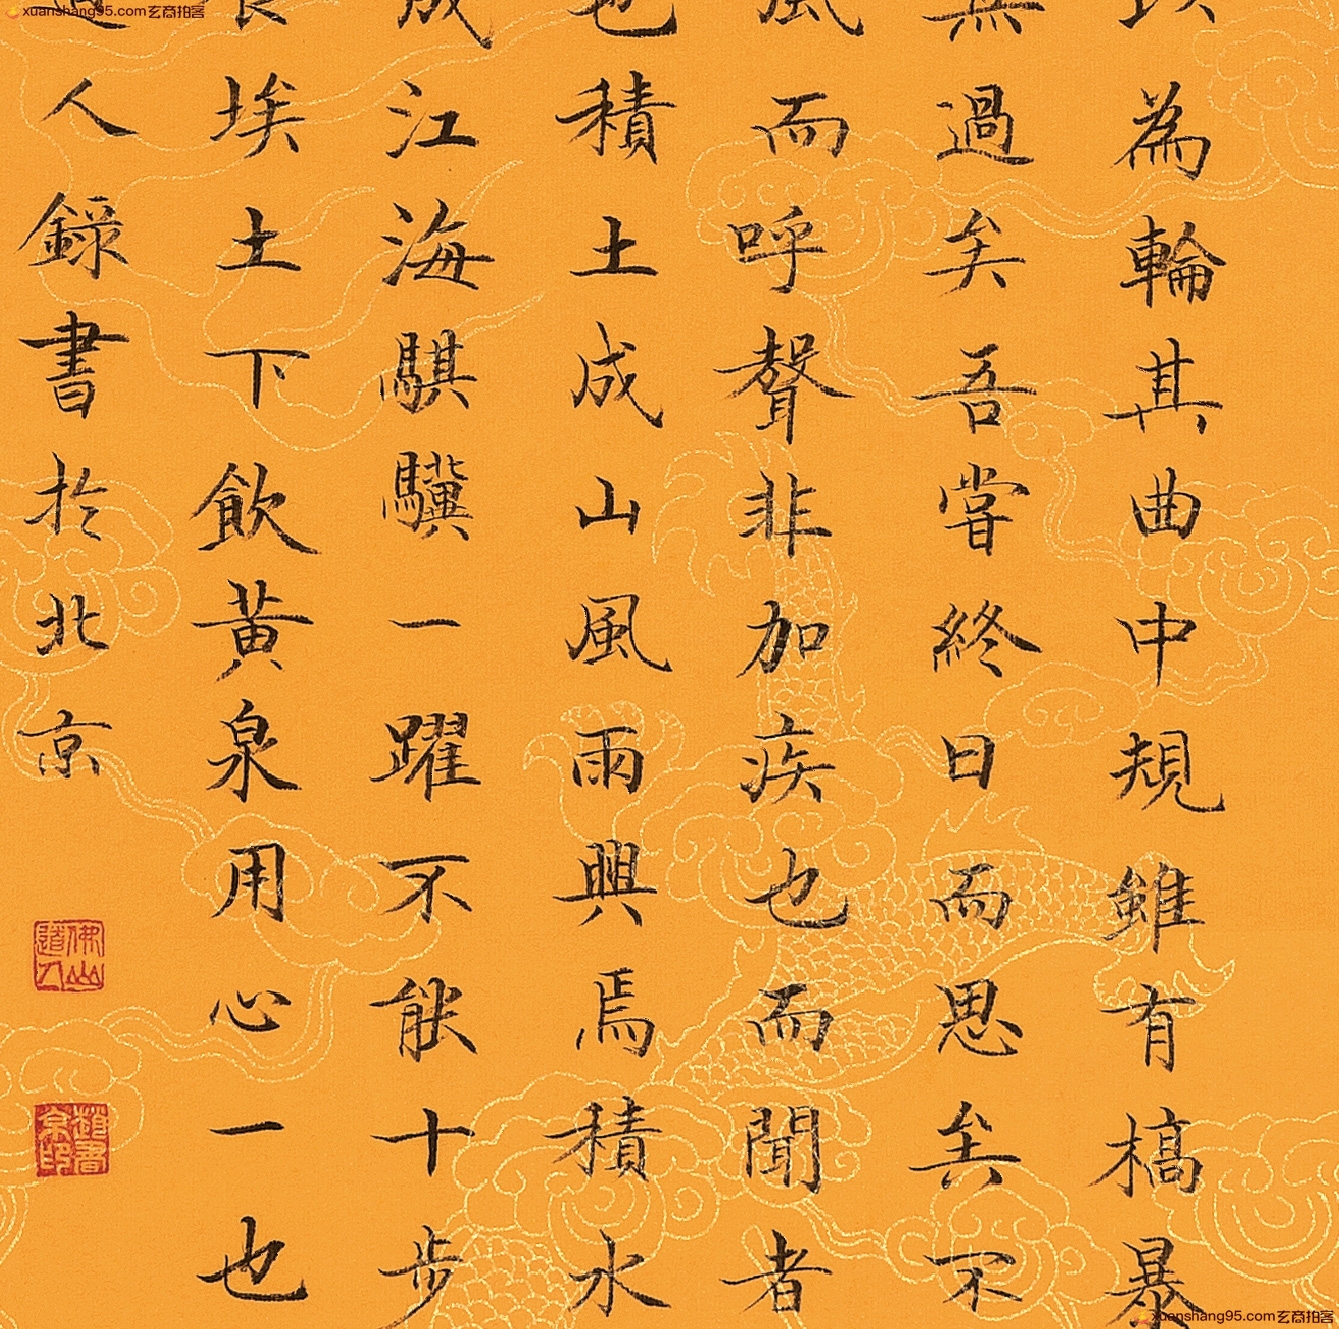 以為輪其曲中規雖有槁暴
無過矣吾嘗終日而思矣不
風而呼聲非加疾也而聞者
也積土成山風雨興焉積水
成江海騏驥一躍不能十步
食埃土下飲黃泉用心一也
道人錄書於北京
佛山道人
xuanshang95.com玄商拍客
xuanshang95.com玄商拍客